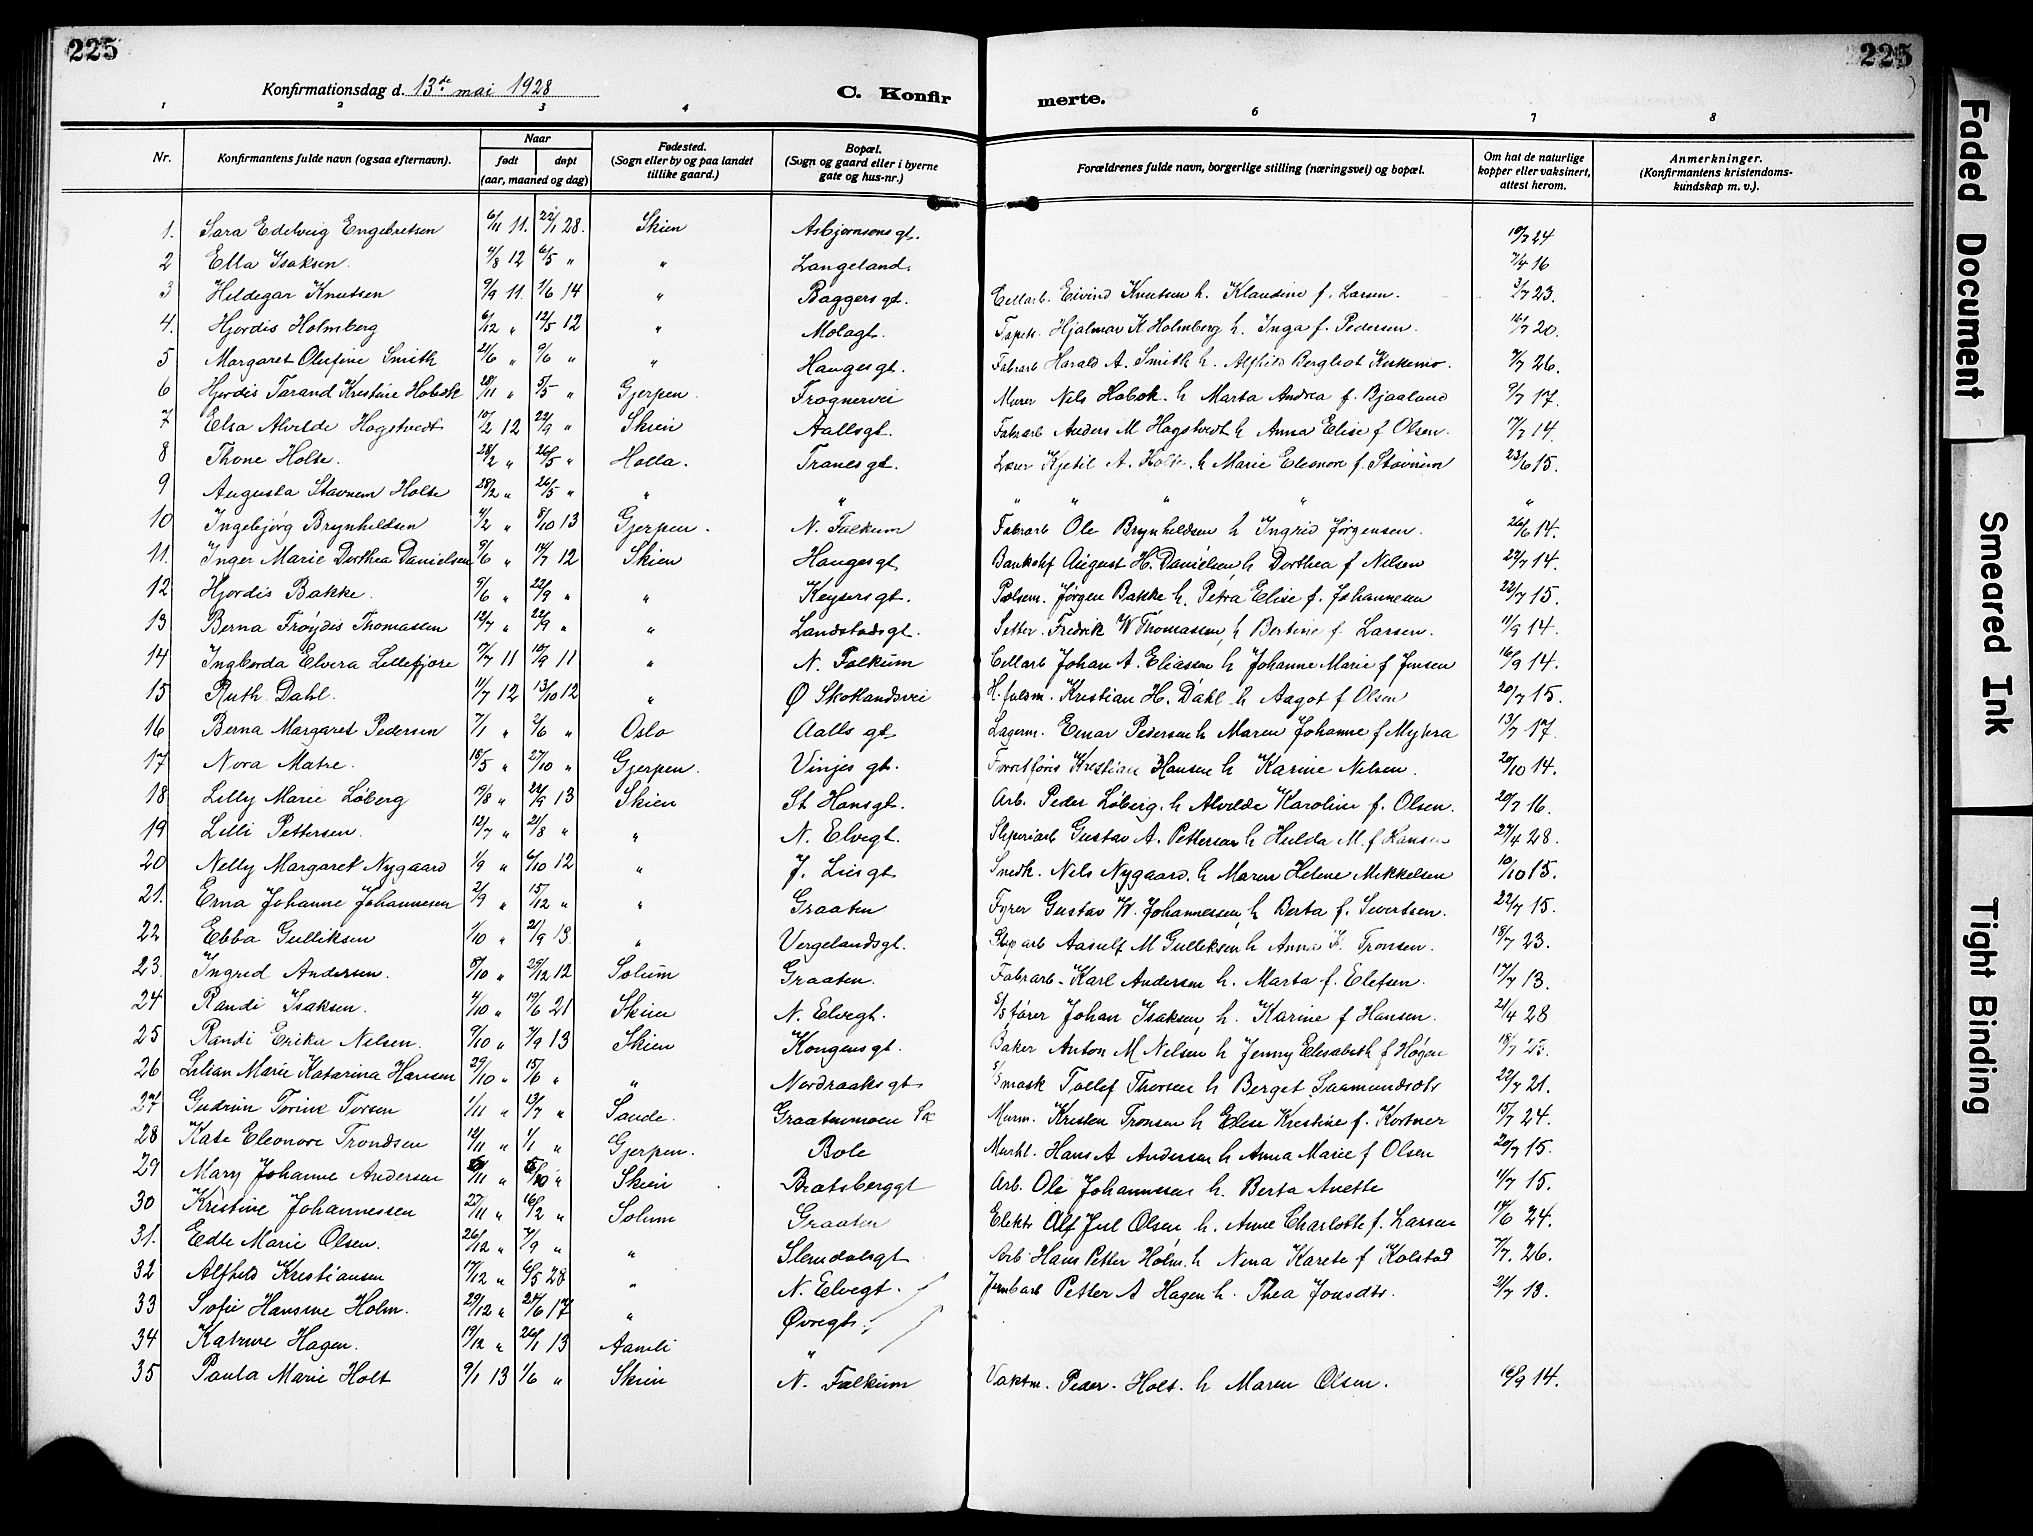 225
225
Konfirmationsdag d. 13de mai 1928
C. Konfir
merte.
1 2 3 4 6 7 8
Nr.
Konfirmantens fulde navn (ogsaa efternavn).
Naar
født døpt
(aar, maaned og dag)
Fødested.
(Sogn eller by og paa landet
tillike gaard.)
Bopæl.
(Sogn og gaard eller i byerne
gate og hus-nr.)
Forældrenes fulde navn, borgerlige stilling (næringsvei) og bopæl.
Om hat de naturlige
kopper eller vaksinert,
attest herom.
Anmerkninger.
(Konfirmantens kristendoms-
kundskap m. v.).
1. Sara Edelveig Engebretsen 6/11 11. 22/1 28. Skien Asbjørnsens gt. 10/7 24
2 Ella Isaksen. 4/8 12 6/5 " " Langeland. 7/4 16
3 Hildegar Knutsen 9/9 11. 1/6 14 " Baggers gt. Cellarb. Eivind Knutsen h. Klaudine f. Larsen. 3/7 23.
4. Hjørdis Holmberg 6/12 " 12/5 12 " Molagt. Tapets. Hjalmar K Holmberg h. Inga f. Pedersen. 16/7 20.
5 Margaret Olefine Smith 21/6 " 9/6 " " Hauges gt. Fabrarb Harald A. Smith h. Alfhild Bergliot Kiskemo. 7/7 26.
6 Hjørdis Tarand Kristine Hobæk 28/11 " 5/5 " Gjerpen. Frognervei Murer Nils Hobæk. h Marta Andrea f. Bjaaland 9/7 17.
7 Elsa Alvilde Hogstvedt 10/2 12 22/9 " Skien Aallsgt. Fabrarb Anders M Hogstvedt h Anna Elise f Olsen. 7/7 14.
8 Thone Holte. 28/2 " 26/5 " Holla. Tranes gt. Lærer Kjetil A. Holte. h Marie Eleonore f. Stavnum 23/6 15.
9 Augusta Stavnem Holte 28/2 " 26/5 " " " " " " " "
10 Ingebjørg Brynhildsen 4/2 " 8/10 13 Gjerpen. N. Falkum Fabrarb Ole Brynhildsen h Ingrid Jørgensen. 26/6 14.
11. Inger Marie Dorthea Danielsen 9/6 " 14/7 12 Skien Hauges gt Bankchf August H. Danielsen, h Dorthea f Nilsen 22/7 14.
12 Hjørdis Bakke. 9/6 " 22/9 " " Keysers gt. Pølsem. Jørgen Bakke h. Petra Elise f. Johannesen 22/7 15.
13 Berna Frøydis Thomassen 12/7 " 22/9 " " Landstadsgt. Setter. Fredrik W Thomassen, h Bertine f. Larsen. 11/9 14.
14 Ingborda Elvera Lillefjøre 17/7 11 10/9 11 " N. Falkum Cellarb Johan A. Eliassen h Johanne Marie f Jensen 16/9 14.
15 Ruth Dahl. 11/7 12 13/10 12 " Ø Skotlandsvei Kristian H. Dahl h Aagot f Olsen 20/7 15.
16 Berna Margaret Pedersen 7/1 " 2/6 " Oslo Aalls gt Lagerm. Einar Pedersen h Maren Johanne f Myhra 13/7 17.
17 Nora Matre. 18/5 " 27/10 " Gjerpen. Vinjes gt. Kristian Hansen h Karine Nilsen. 20/10 14.
18 Lilly Marie Løberg 19/8 " 22/9 13 Skien St Hansgt. Arb. Peder Løberg. h Alvilde Karoline f. Olsen. 20/7 16.
19 Lilli Pettersen. 12/7 " 21/8 " " N. Elvegt. Sliperiarb Gustav A. Pettersen h Hulda M. f Hansen 27/4 28.
20 Nelly Margaret Nygaard 1/9 " 6/10 12 " J. Lies gt Snedk. Nils Nygaard. h Maren Helene Mikkelsen 10/10 15.
21. Erna Johanne Johannesen 2/9 " 15/12 " " Graaten Fyrer Gustav W. Johannessen h Berta f. Sivertsen. 22/7 15.
22 Ebba Gulliksen 1/10 " 21/9 13. " Vergelandsgt. Slip arb Aasulf M Gulliksen h Anna f. Tronsen. 18/7 23.
23 Ingrid Andersen. 8/10 " 29/12 12 Solum Graaten. Fabrarb. Karl Andersen h. Marta f. Elefsen. 17/7 13.
24 Randi Isaksen. 4/10 " 19/6 21 Skien N. Elvegt. S/S fører Johan Isaksen, h. Karine f Hansen. 21/4 28
25 Randi Erika Nilsen. 9/10 " 7/9 13 Skien Kongens gt. Baker Anton M Nilsen h Jenny Elisabeth f Høgen 18/7 23.
26 Lilian Marie Katarina Hansen 29/10 " 15/6 " " Nordraaks gt S/S mask Tollef Thorsen h Berget Saamundsdtr 22/7 21.
27 Gudrun Torine Torsen 1/11 " 13/7 " Sande. Graatenmoen Sk Murm. Kristen Tronsen h Elise Kristine f. Kortner 15/7 24.
28 Kate Eleonore Trondsen 12/11 " 1/1 " Gjerpen. Bole Hans A Andersen h Anna Marie f Olsen 20/7 15.
29 Mary Johanne Andersen /11 " /10 " Skien Bratsberggt Arb. Ole Johannesen h. Berta Anette 4/7 15.
30 Kristine Johannessen 27/11 " 16/2 " Solum Graaten Elektr Alf Jul Olsen h. Anne Charlotte f. Larsen 14/6 24.
31. Edle Marie Olsen. 26/12 " 7/9 " " Slemdalsgt Arb Hans Petter Holm. h Nina Karete f Kolstad 7/7. 26.
32 Alfhild Kristiansen 17/12 " 6/5 28 " N. Elvegt. Jernbarb Petter A Hagen h. Thea Jonsdtr. 2/7 13.
33 Sofie Hansine Holm. 29/12 " 24/6 17 " Øvregt.
34 Katrine Hagen. 19/12 " 26/1 13 Aamli "
35 Paula Marie Holt 9/1 13 1/6 " Skien N. Falkum Vaktm. Peder. Holt. h Maren Olsen. 16/9 14.
Faded Document
Smeared Ink
Tight Binding